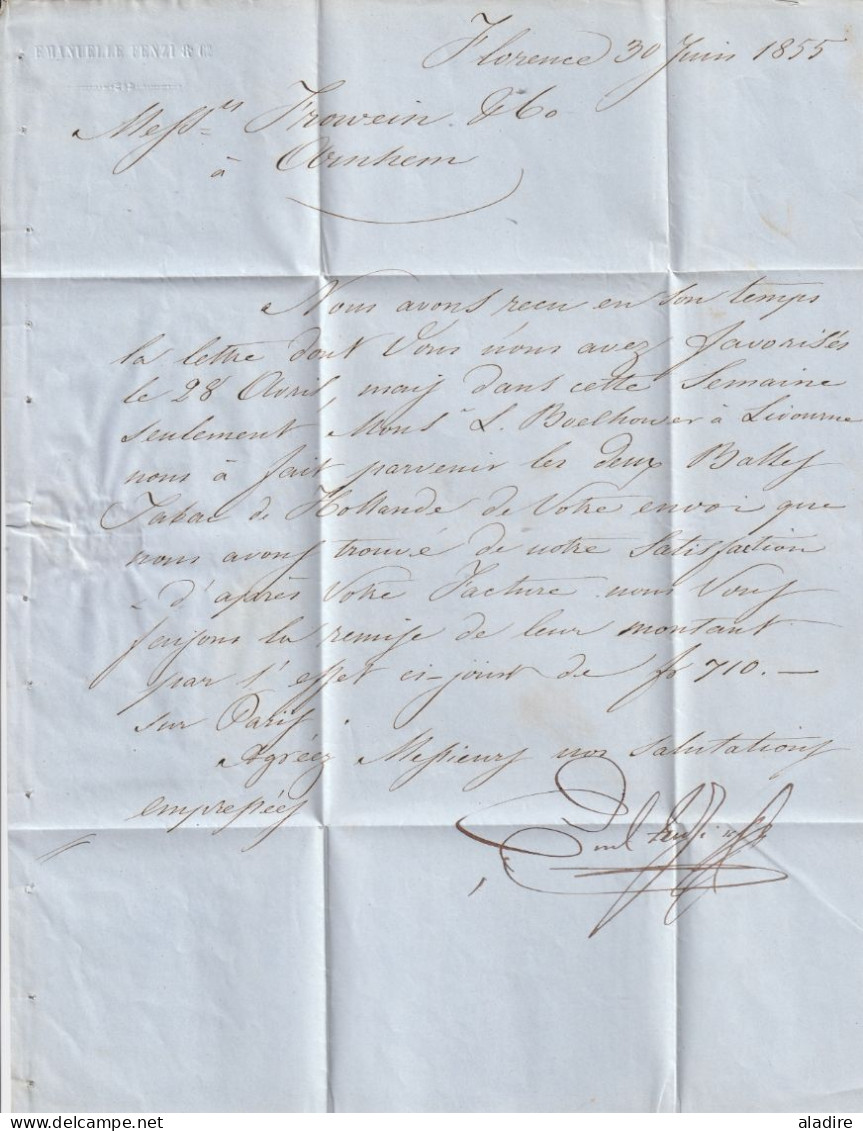 EMANUELLE FENZI & Cº
Florence 30 Juin 1855
Messrs Frowein & Co
à Arnhem
Nous avons recu en son temps
la lettre dont Vous nous avez favorisés
le 28 Avril, mais dans cette Semaine
seulement Monsr L. Boelhouwer à Livourne
nous à fait parvenir les deux Balles
Tabac de Hollande de Votre envoi que
nous avons trouvé de notre Satisfaction
- d'après Votre Facture nous Vous
faisons la remise de leur montant
par l'effet ci-joint de fr 710.—
sur Paris.
Agréez Messieurs nos salutations
empressées
Eml Fenzi
aladire
delcampe.net